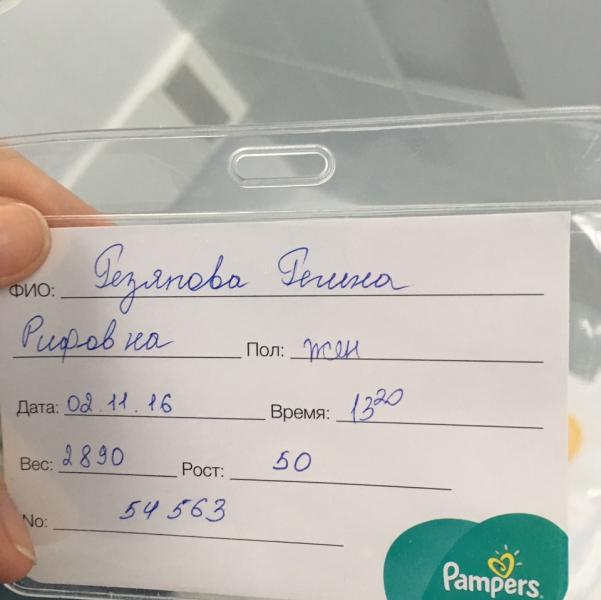 ФИО: Гезяпова Регина
Рифовна Пол: жен
Дата: 02.11.16 Время: 13 20
Вес: 2890 Рост: 50
No: 54563
Pampers